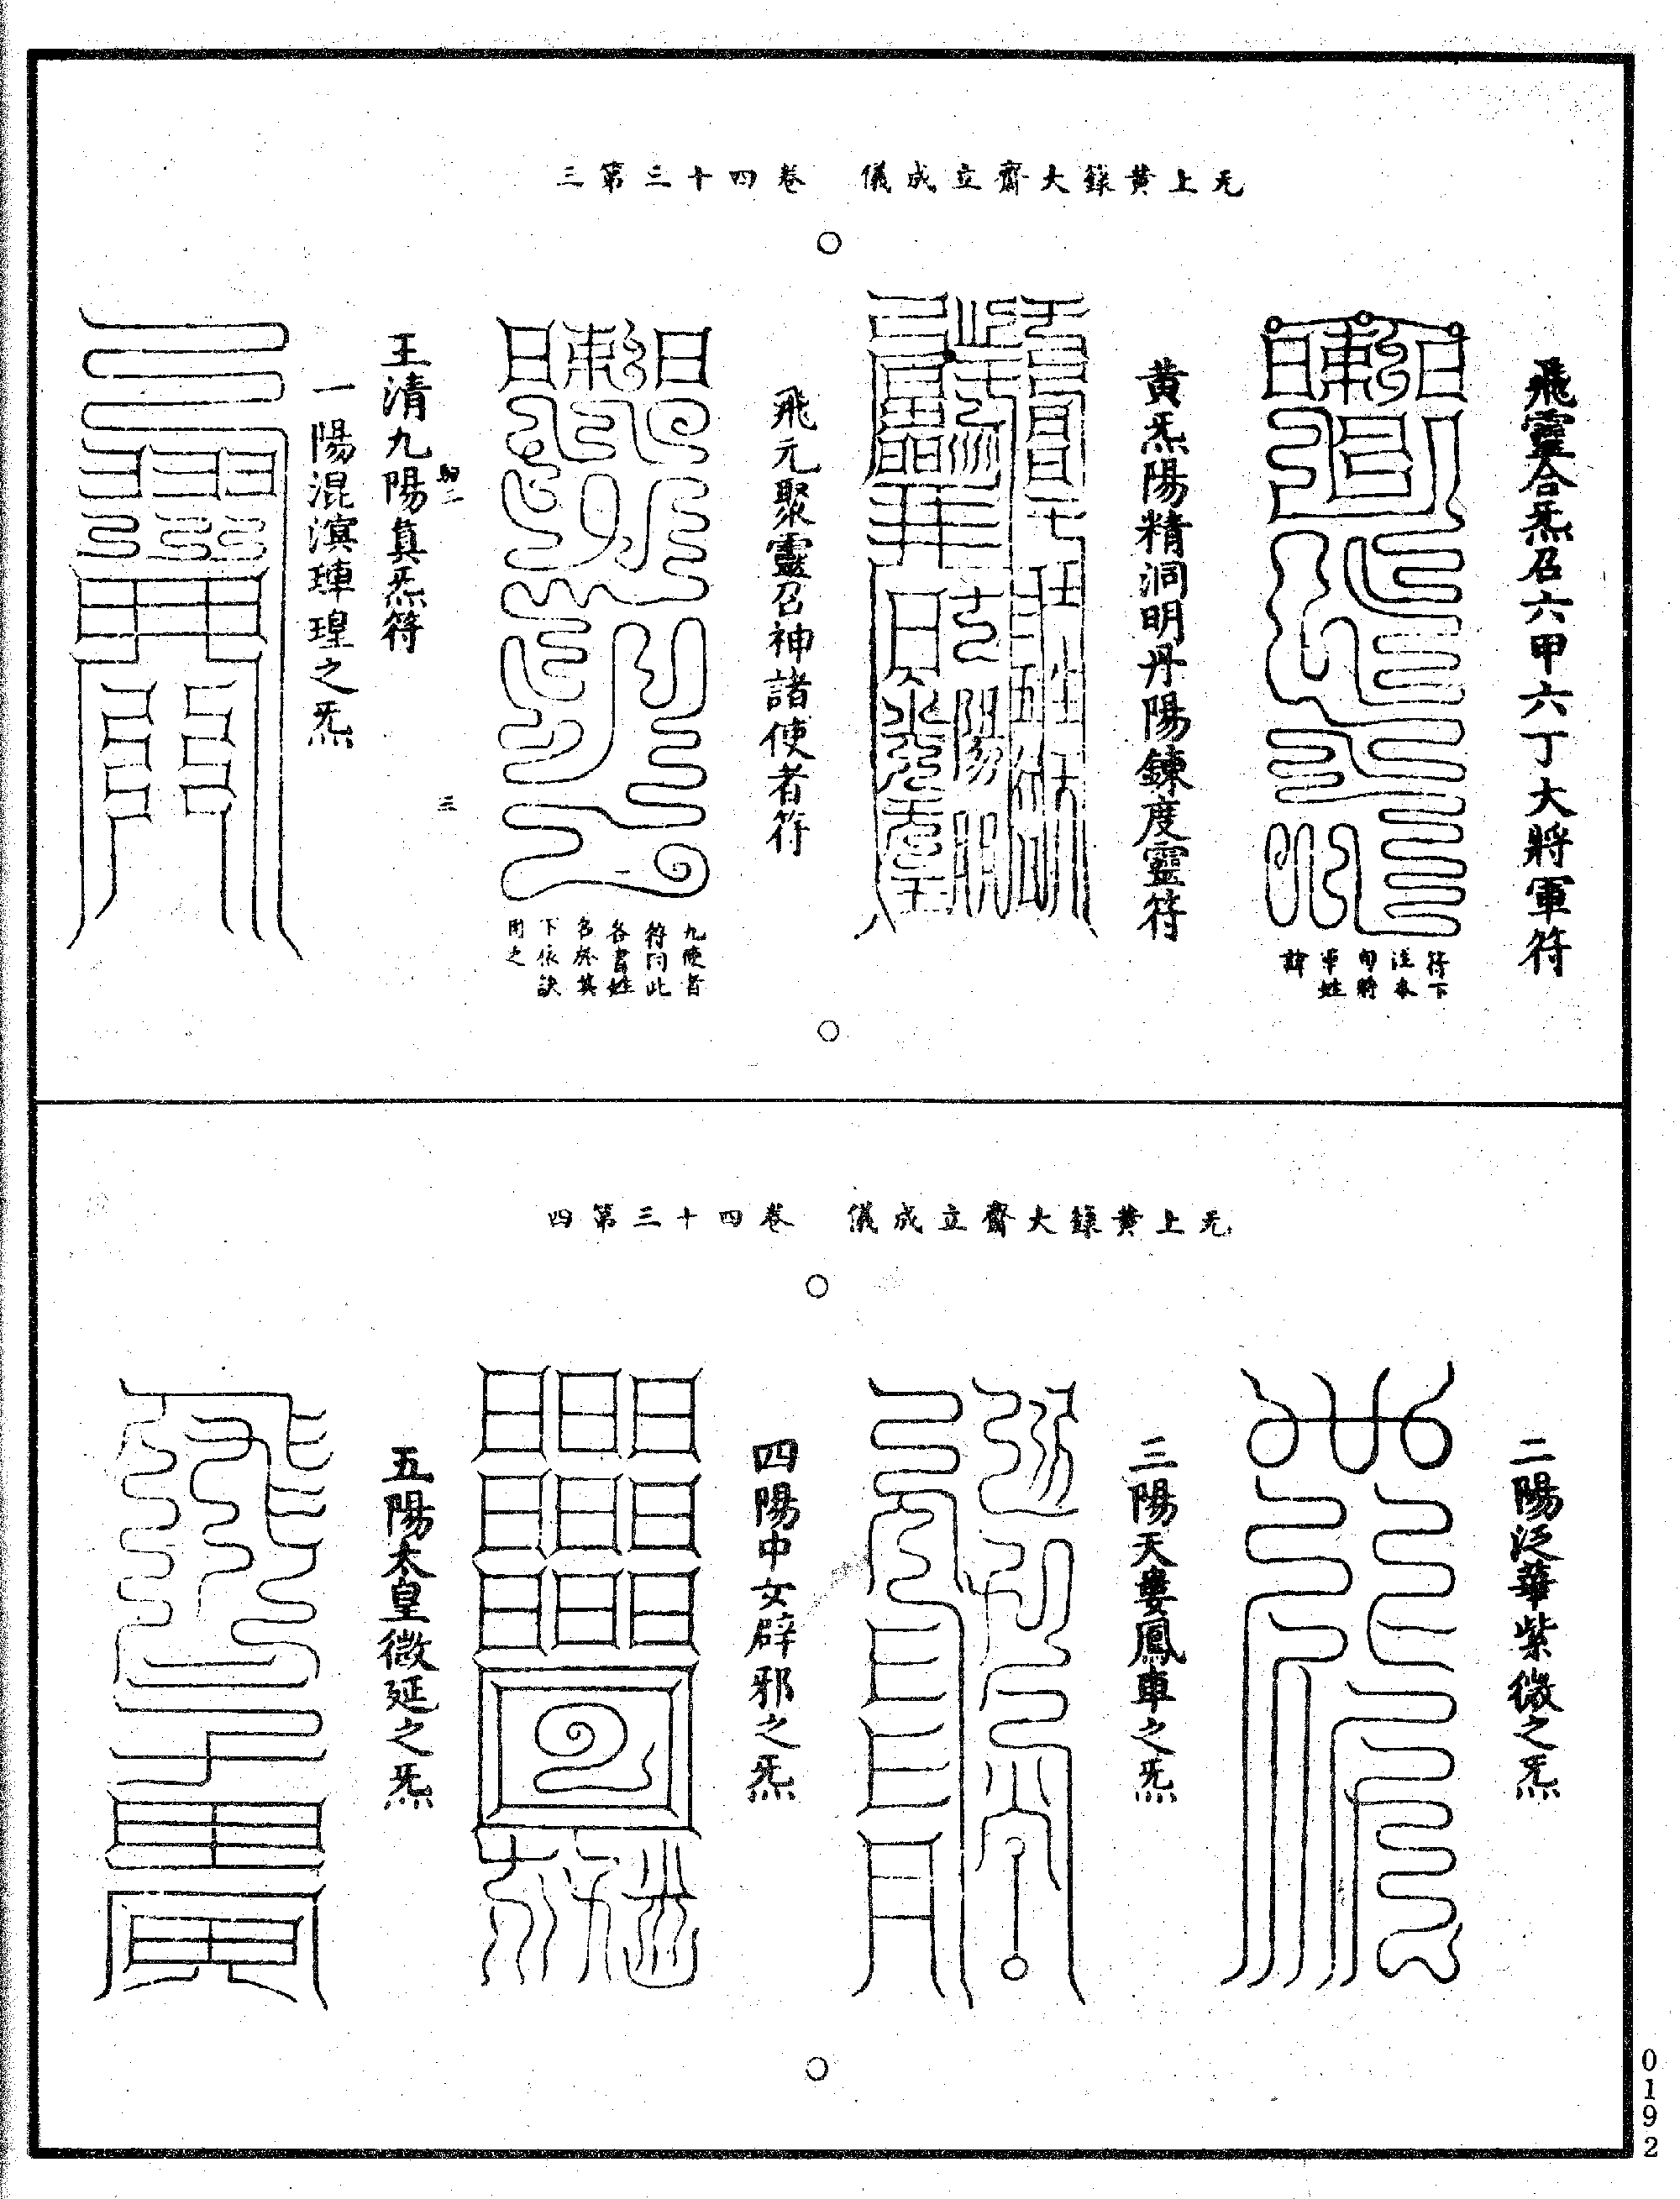 无上黃籙大齋立成儀　卷四十三第三
飛靈合炁召六甲六丁大將軍符
符下
注本
旬將
軍姓
諱
黃炁陽精洞明丹陽鍊度靈符
飛元聚靈召神諸使者符
九使者
符同此
各書姓
名於其
下依訣
用之
三
王清九陽真炁符
一陽混溟琿瑝之炁
无上黃籙大齋立成儀　卷四十三第四
二陽泛華紫微之炁
三陽天婁鳳車之炁
四陽中女辟邪之炁
五陽太皇微延之炁
0192